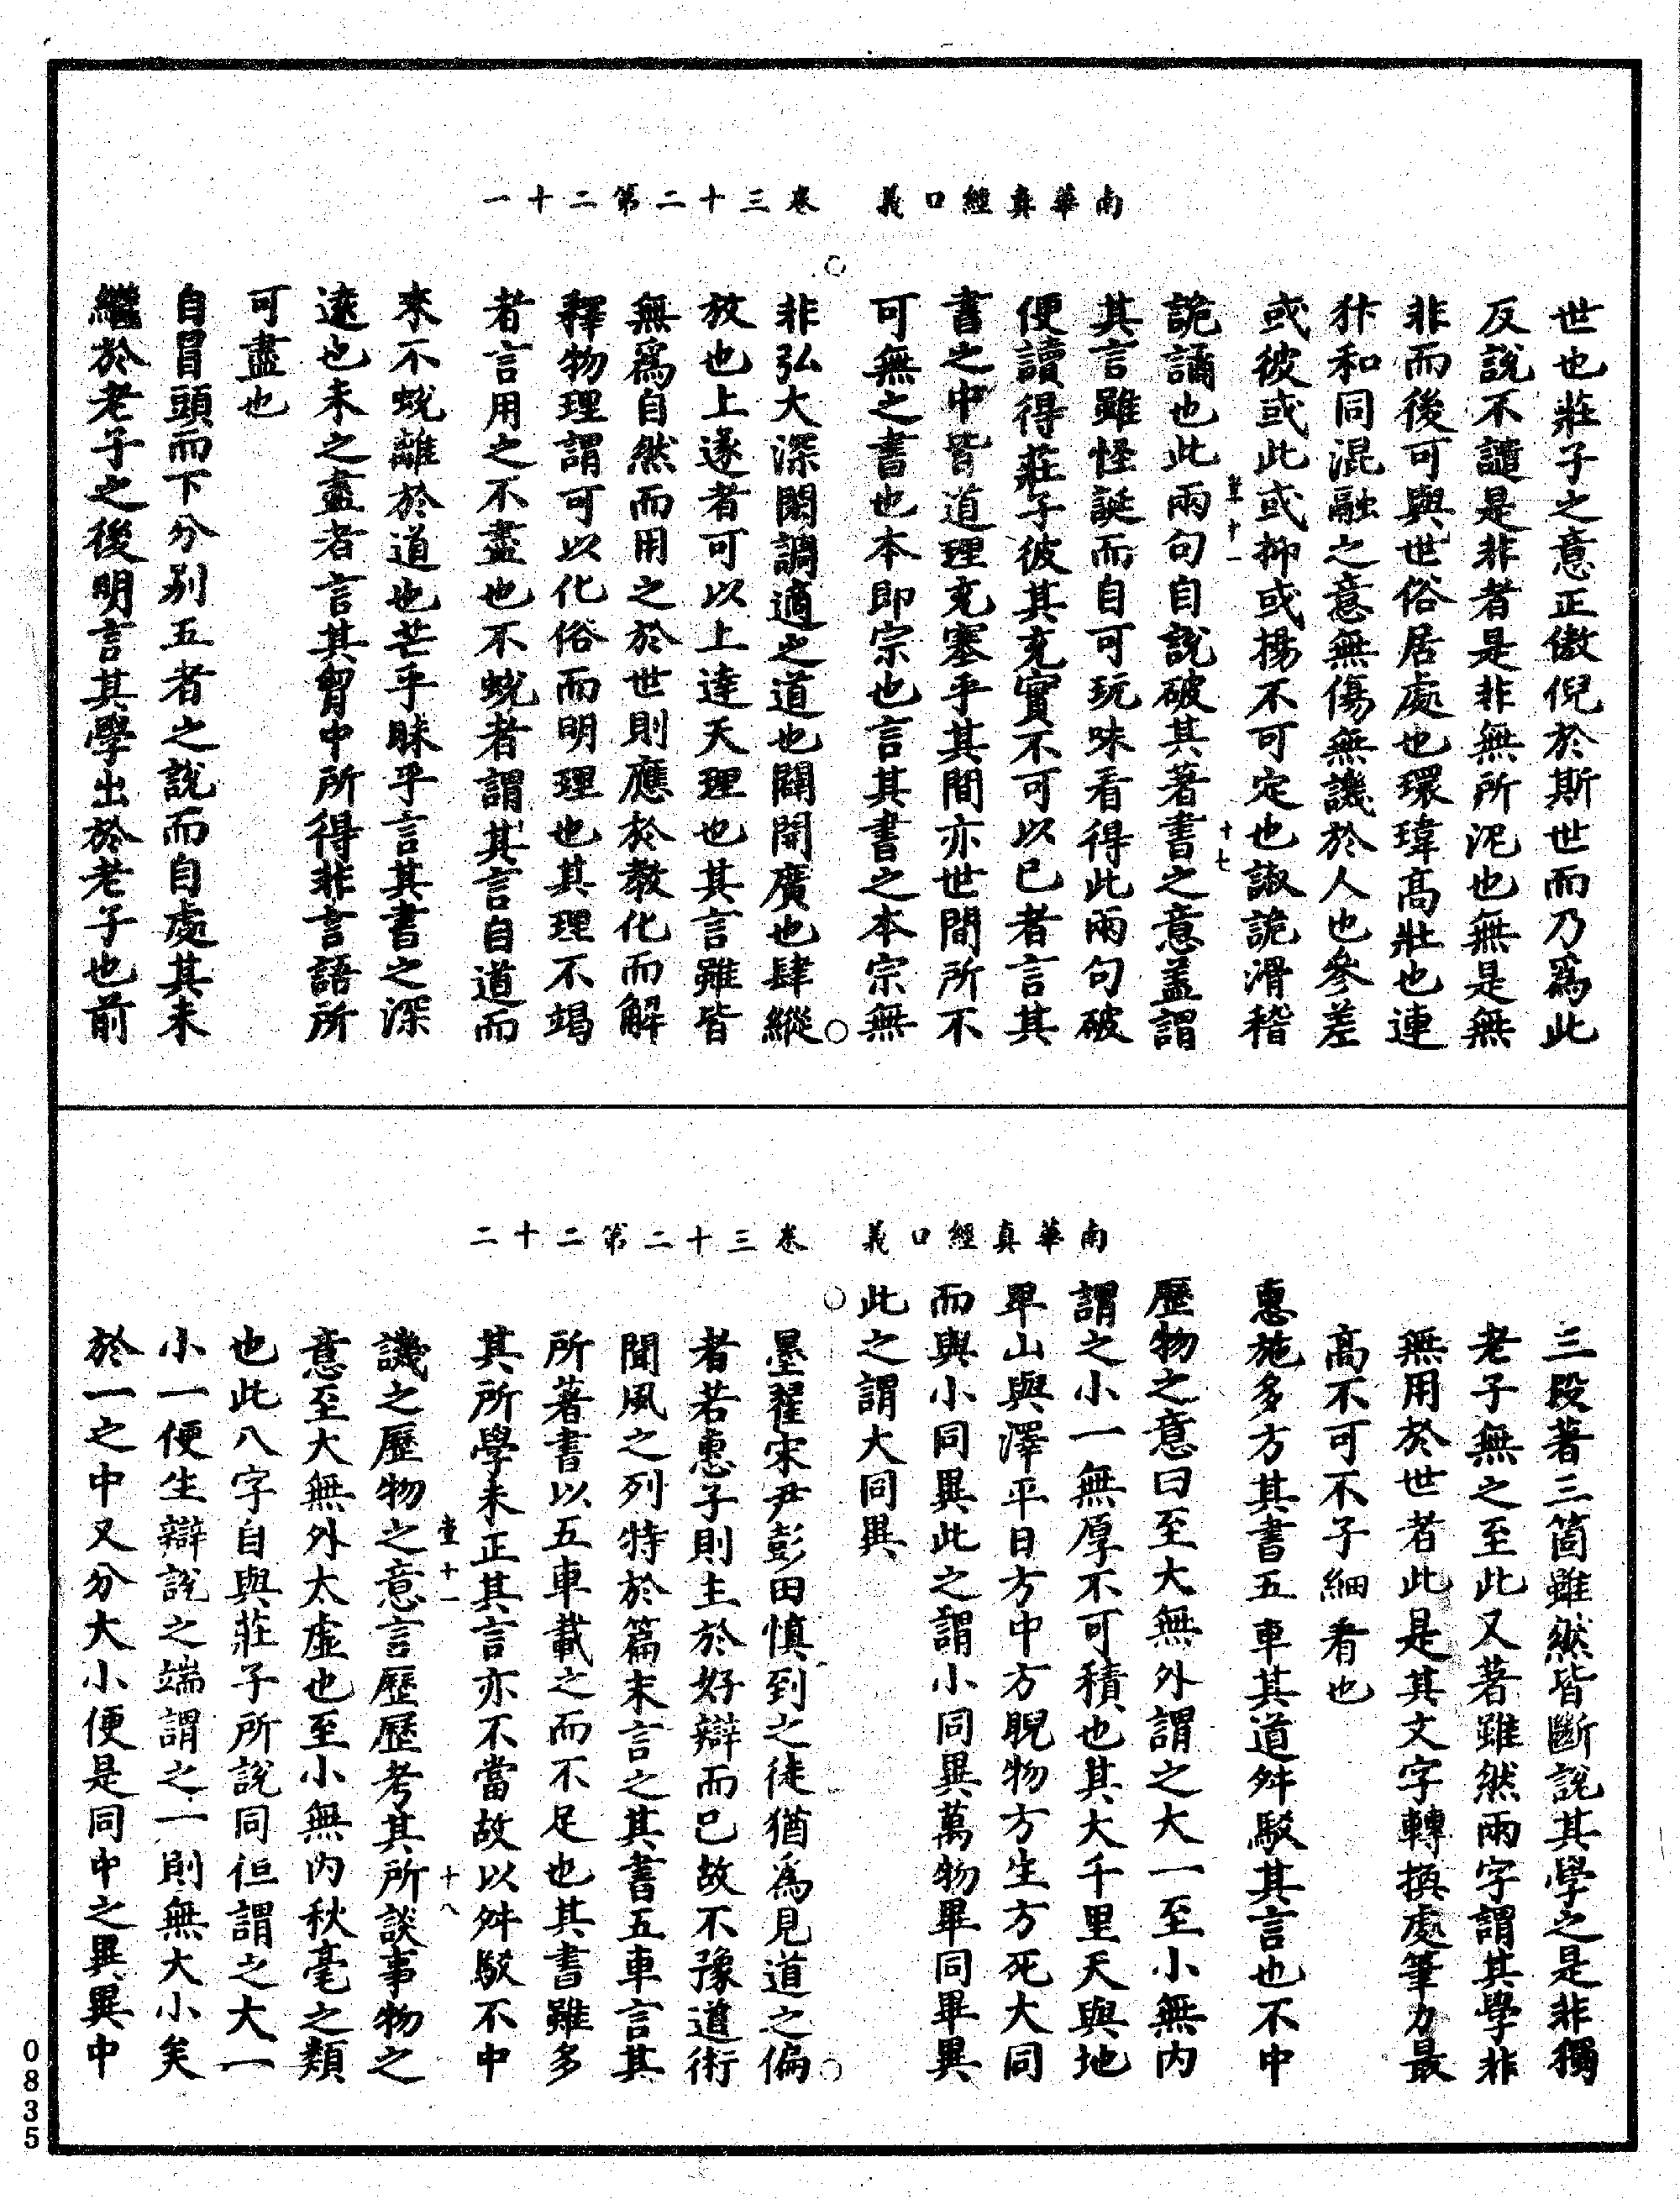 南華真經口義　卷三十二第二十一
世也莊子之意正傲倪於斯世而乃為此
反說不譴是非者是非無所泥也無是無
非而後可與世俗居處也瓌瑋高壯也連
犿和同混融之意無傷無譏於人也參差
或彼或此或抑或揚不可定也諔詭滑稽
詭譎也此兩句自說破其著書之意蓋謂
其言雖怪誕而自可玩味看得此兩句破
便讀得莊子彼其充實不可以已者言其
書之中皆道理充塞乎其間亦世間所不
可無之書也本即宗也言其書之本宗無
非弘大深閎調適之道也闢開廣也肆縱
放也上遂者可以上達天理也其言雖皆
無為自然而用之於世則應於教化而解
釋物理謂可以化俗而明理也其理不竭
者言用之不盡也不蛻者謂其言自道而
來不蛻離於道也芒乎昧乎言其書之深
遠也未之盡者言其胷中所得非言語所
可盡也
自冒頭而下分別五者之說而自處其末
繼於老子之後明言其學出於老子也前
南華真經口義　卷三十二第二十二
三段著三箇雖然皆斷說其學之是非獨
老子無之至此又著雖然兩字謂其學非
無用於世者此是其文字轉換處筆力最
高不可不子細看也
惠施多方其書五車其道舛駁其言也不中
歷物之意曰至大無外謂之大一至小無內
謂之小一無厚不可積也其大千里天與地
卑山與澤平日方中方睨物方生方死大同
而與小同異此之謂小同異萬物畢同畢異
此之謂大同異
墨翟宋尹彭田慎到之徒猶為見道之偏
者若惠子則主於好辯而已故不豫道術
聞風之列特於篇末言之其書五車言其
所著書以五車載之而不足也其書雖多
其所學未正其言亦不當故以舛駁不中
譏之歷物之意言歷歷考其所談事物之
意至大無外太虛也至小無內秋毫之類
也此八字自與莊子所說同但謂之大一
小一便生辯說之端謂之一則無大小矣
於一之中又分大小便是同中之異異中
0835